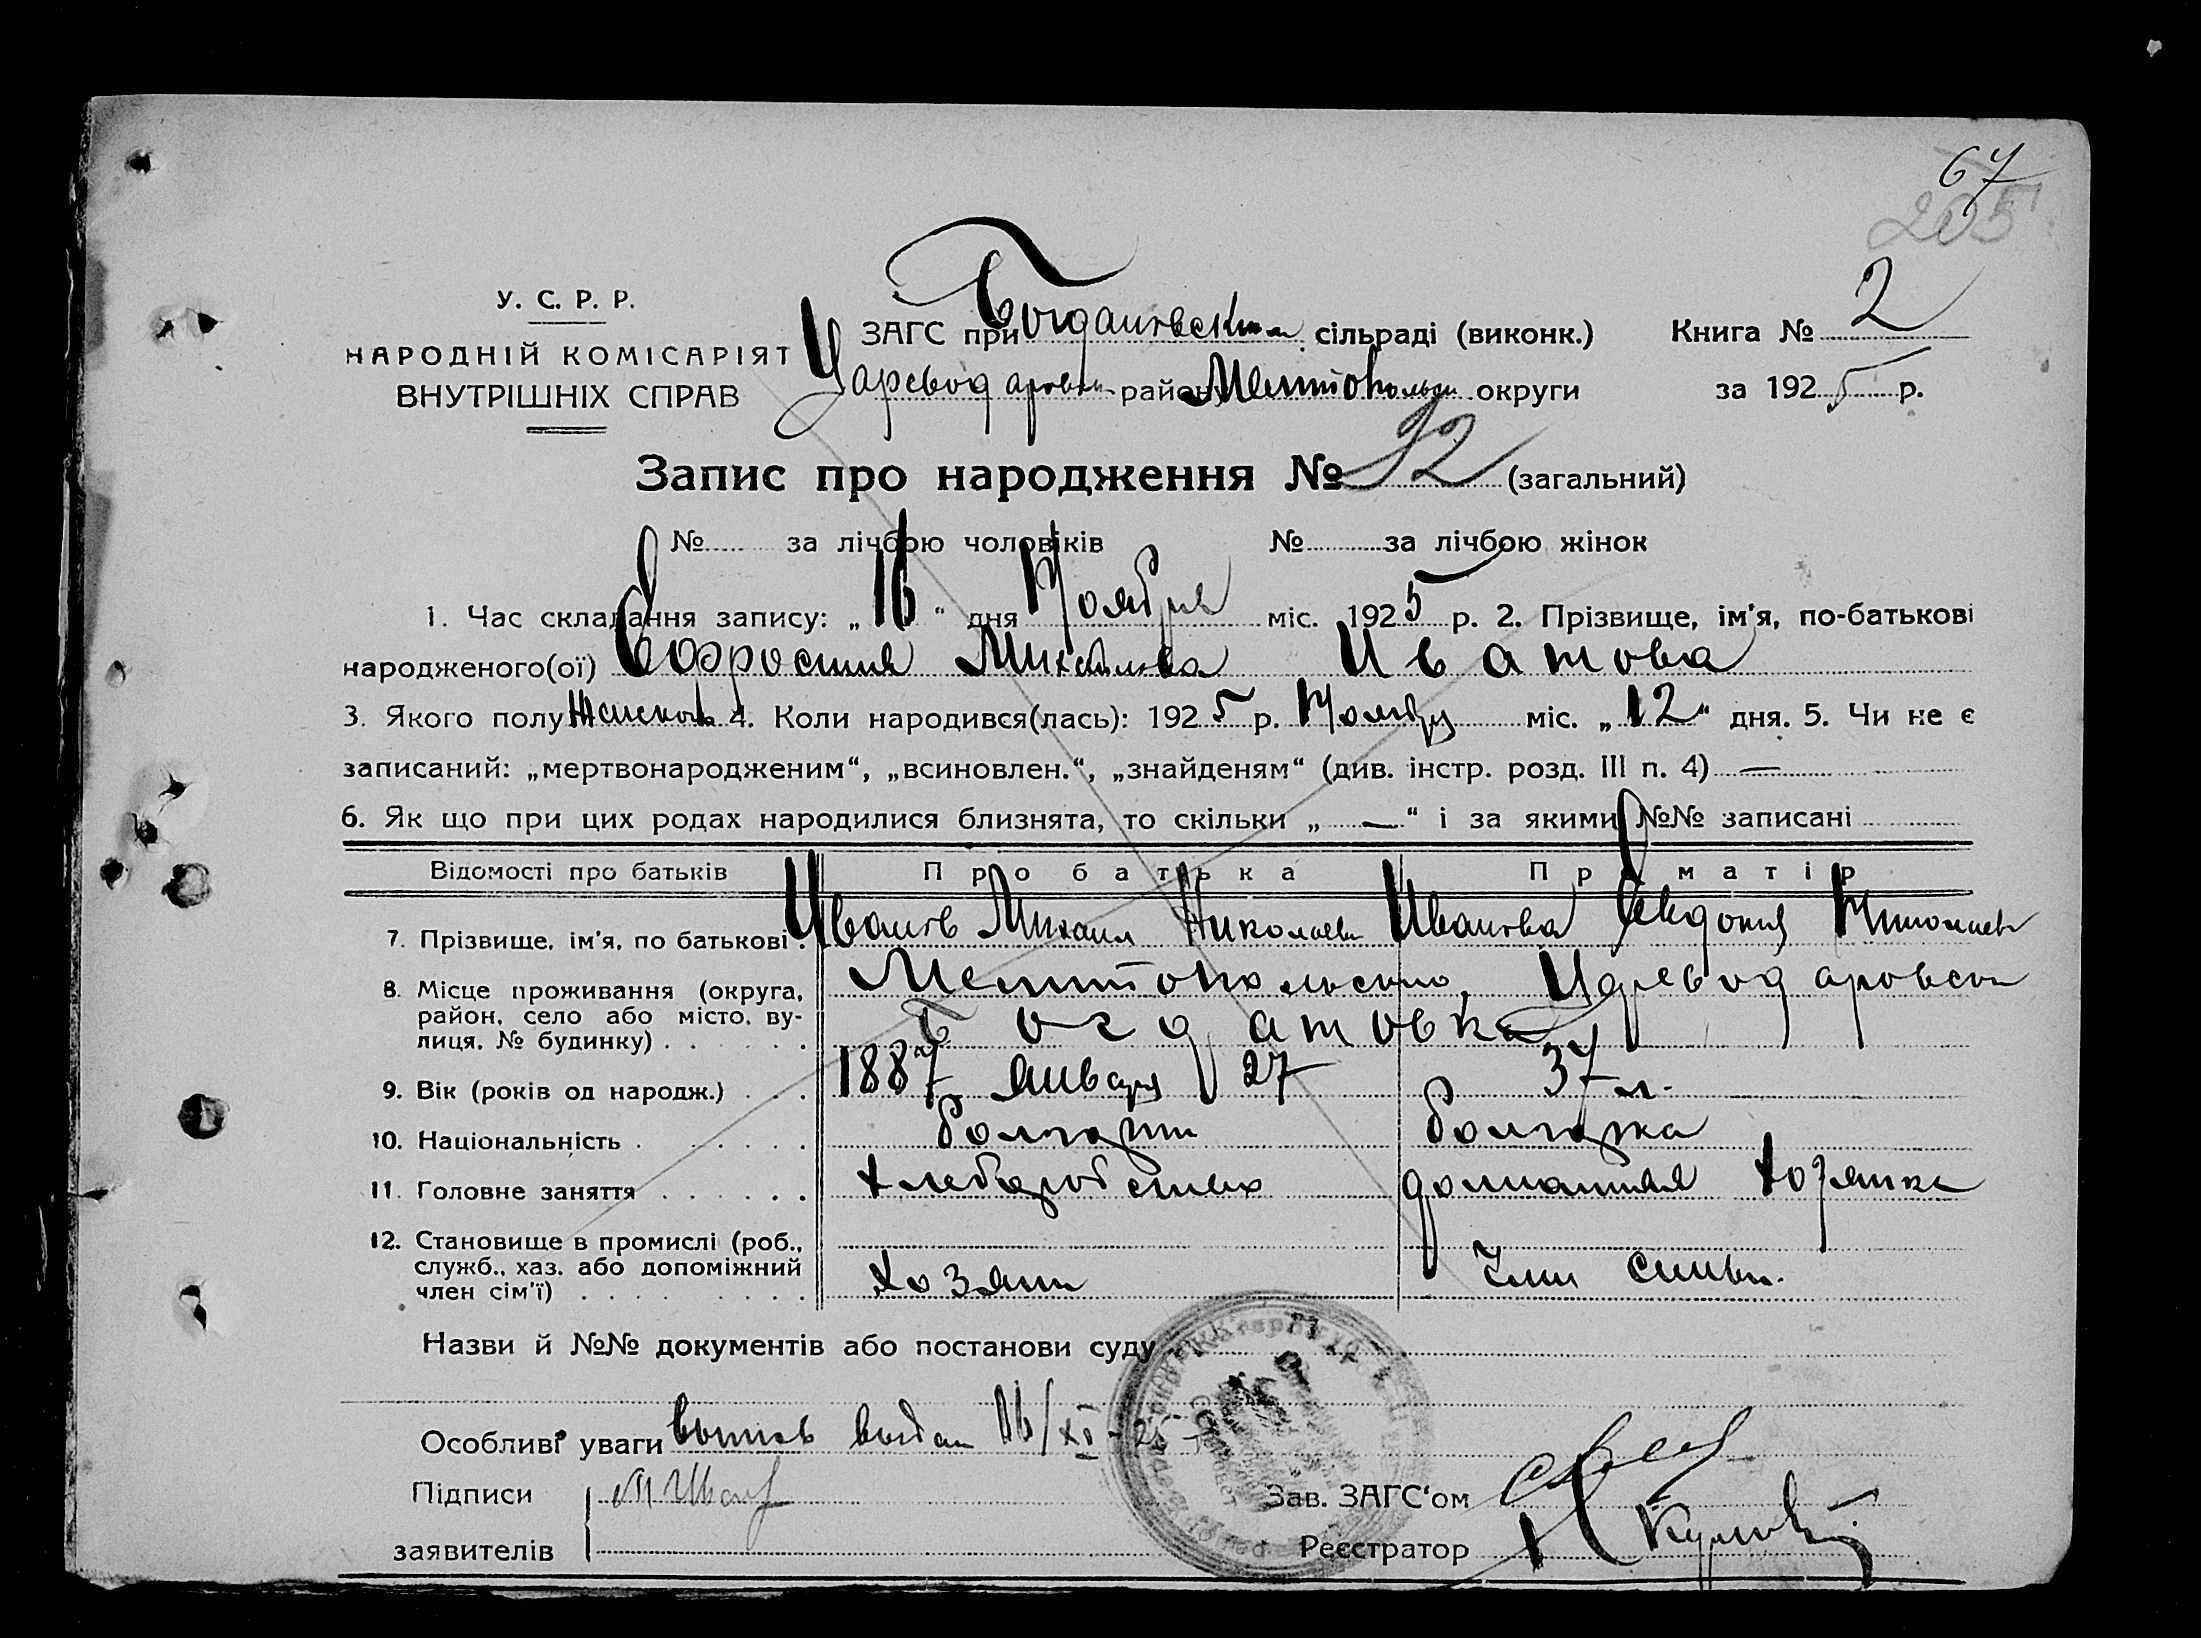 67
205
У. С. Р. Р.
НАРОДНІЙ КОМІСАРІЯТ
ВНУТРІШНІХ СПРАВ
ЗАГС при Богдановском сільраді (виконк.) Книга № 2
Царевод аровск району Мелитопольск округи за 1925 р.
Запис про народження № 92 (загальний)
№ за лічбою чоловіків № за лічбою жінок
1. Час складання запису: „16“ дня Ноября міс. 1925 р. 2. Прізвище, ім'я, по-батькові
народженого(ої) Ефросиния Михайлова Иванова
3. Якого полу Женскаго 4. Коли народився(лась): 1925 р. Ноября міс. „12“ дня. 5. Чи не є
записаний: „мертвонародженим“, „всиновлен.“, „знайденям“ (див. інстр. розд. III п. 4) —
6. Як що при цих родах народилися близнята, то скільки „—“ і за якими №№ записані
Відомості про батьків Про батька Про матір
7. Прізвище, ім'я, по батькові. Иванов Михаил Николаев Иванова Евдокия Николаев
8. Місце проживання (округа, район, село або місто, вулиця, № будинку) Мелитопольского, Царевод аровскаго
Богдановка
9. Вік (років од народж.) 1887 января 27 37 л.
10. Національність болгарин болгарка
11. Головне заняття хлебаробство домашняя хозяйка
12. Становище в промислі (роб., служб., хаз. або допоміжний член сім'ї) хозяин Член семьи.
Назви й №№ документів або постанови суду
Особливі уваги выпись выдан 16/XI-25
Підписи М Иванов Зав. ЗАГС‘ом
заявителів Реєстратор